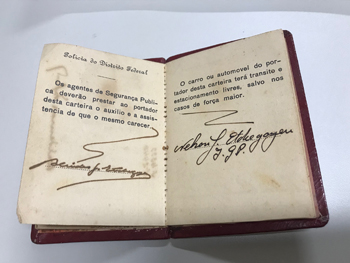 Policia do Districto Federal
Os agentes de Segurança Publi-
ca deverão prestar ao portador
desta carteira o auxilio e a assis-
tencia de que o mesmo carecer.
O carro ou automovel do por-
tador desta carteira terá transito e
estacionamento livres, salvo nos
casos de força maior.
Nelson